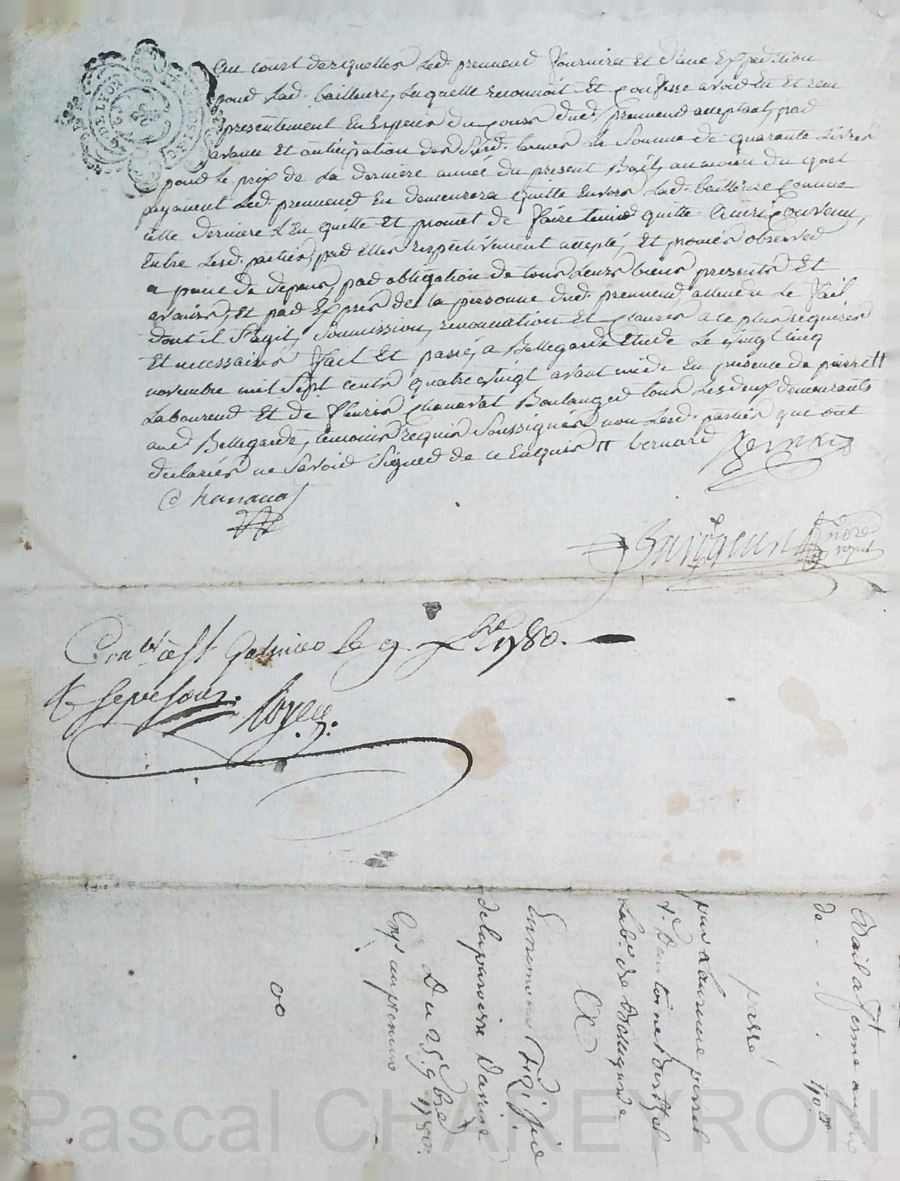 au court desquelles led. prennend fournira et d'une Expedition
pour lad. bailleure, laquelle reconnoit et confesse avoir eu et reçu
presentement En Especes du cours dud. prennend acceptant, par
avance et anticipation des susd. termes la somme de quarante livres
pour le prix de la derniere année du present Bail, au moien du quel
payement led. prennend En demeurera quitte Envers lad. bailleure comme
cette derniere l'En quitte et promet de faire tenir quitte Ainsi Convenu,
Entre lesd. parties, par elles respectivement accepté, et promis observer
a peine de depens, par obligation de tous leurs biens presents et
avenirs, et par Exprès de la personne dud. prennend attendu le fait
dont il s'agit, soumission, renonciation et clauses a ce plus requises
et necessaires fait et passé, a Bellegarde Etude le vingt cinq
novembre mil sept cents quatre vingt avant midi En presence de pierre
Laboureud et de fleuris chanavat Boulanger tous les deux demeurants
aud. Bellegarde, temoins requis soussignés non lesd. parties qui ont
declarées ne savoir signer de ce Enquis bernard
Bernard
Chanavat
nore
royal
Conlé. a St Galmier le 9. Xbre 1780.
Royer.
Bail a ferme au prix
de . . . 40.#
passé
par
a s.
Lab.r de Bellegarde
A
de la paroisse
Du 25. 9bre 1780.
Exps. au preneur
00
LYON
Pascal CHAREYRON